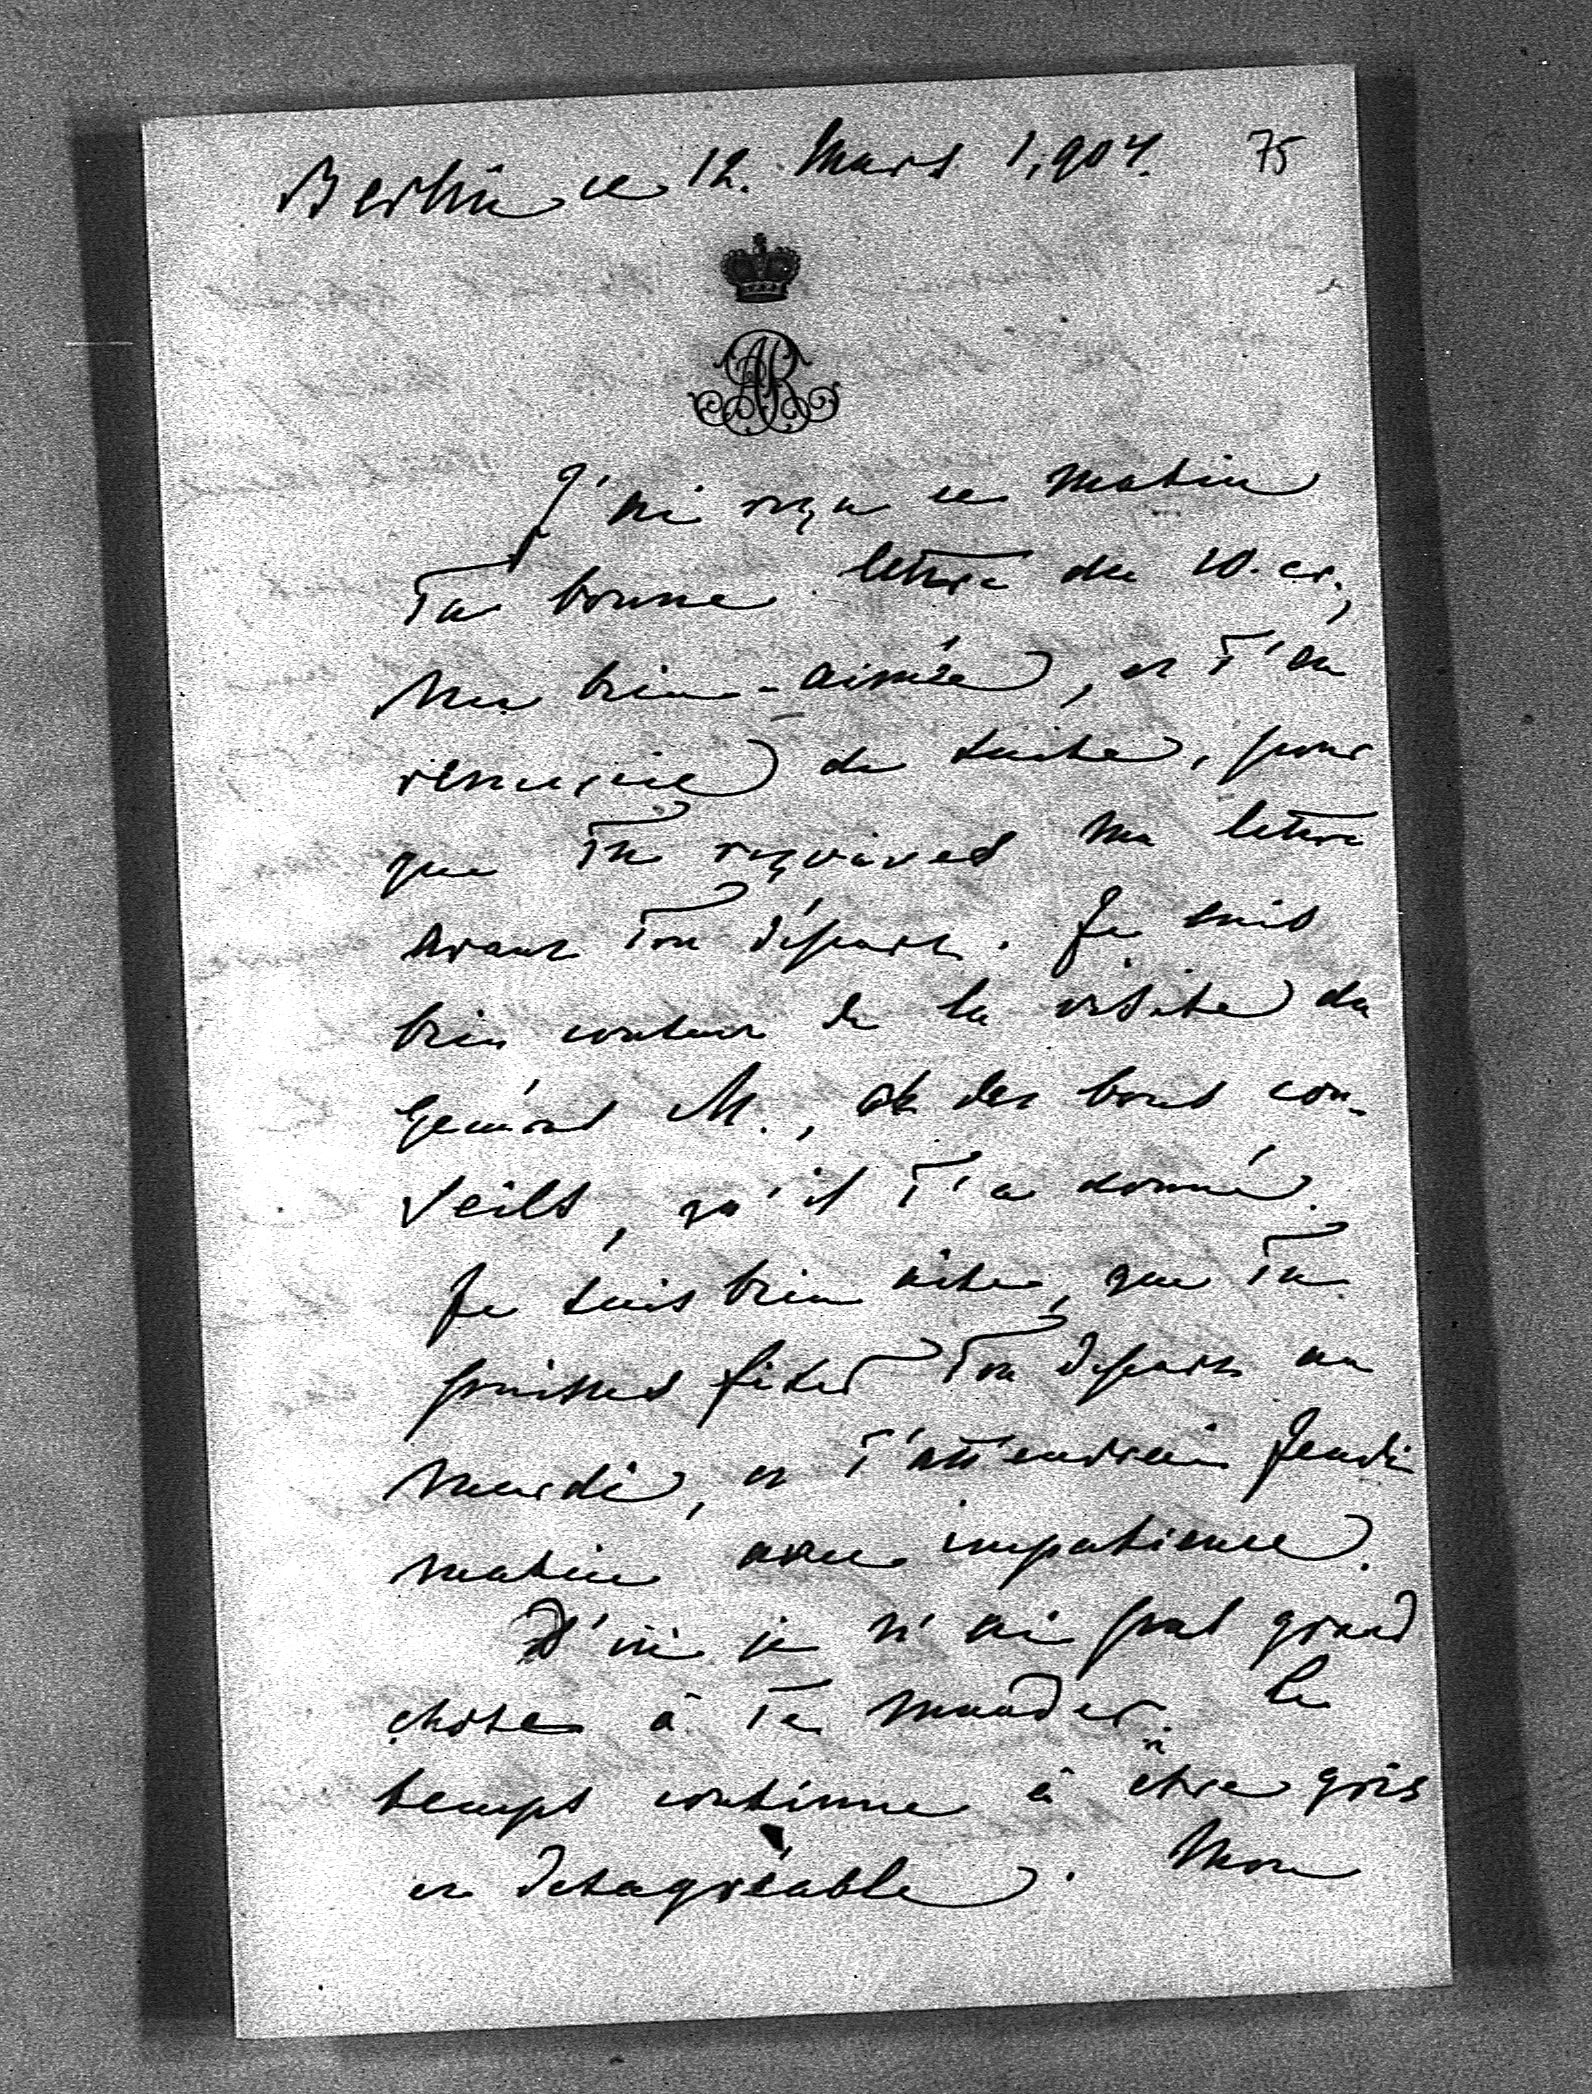 Berlin ce 12. Mars 1,904. 75
AR
J'ai reçu ce matin
Ta bonne lettre du 10. cr.,
Ma bien-aimée, et T'en
remercie de suite, pour
que Tu reçoives ma lettre
avant Ton départ. Je suis
bien content de la visite du
Général M., et des bons con-
seils, qu'il T'a donné.
Je suis bien aise, que Tu
puisses fixer Ton départ au
Mardi, et T'attendrai Jeudi
matin avec impatience.
D'ici je n'ai pas grand
chose à Te mander. Le
temps continue à être gris
et désagréable. Mon